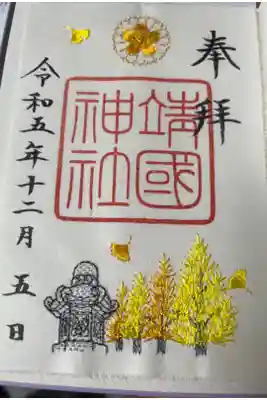 奉拝
靖國
神社
令和五年十二月五日